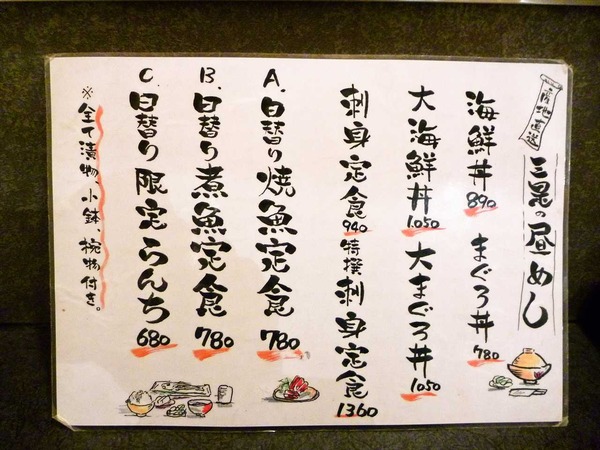 産地直送
三晃の昼めし
海鮮丼 890
まぐろ丼 780
大海鮮丼 1050
大まぐろ丼 1050
刺身定食 940
特撰刺身定食 1360
A.日替り焼魚定食 780
B.日替り煮魚定食 780
C.日替り限定らんち 680
※全て漬物、小鉢、椀物付き。